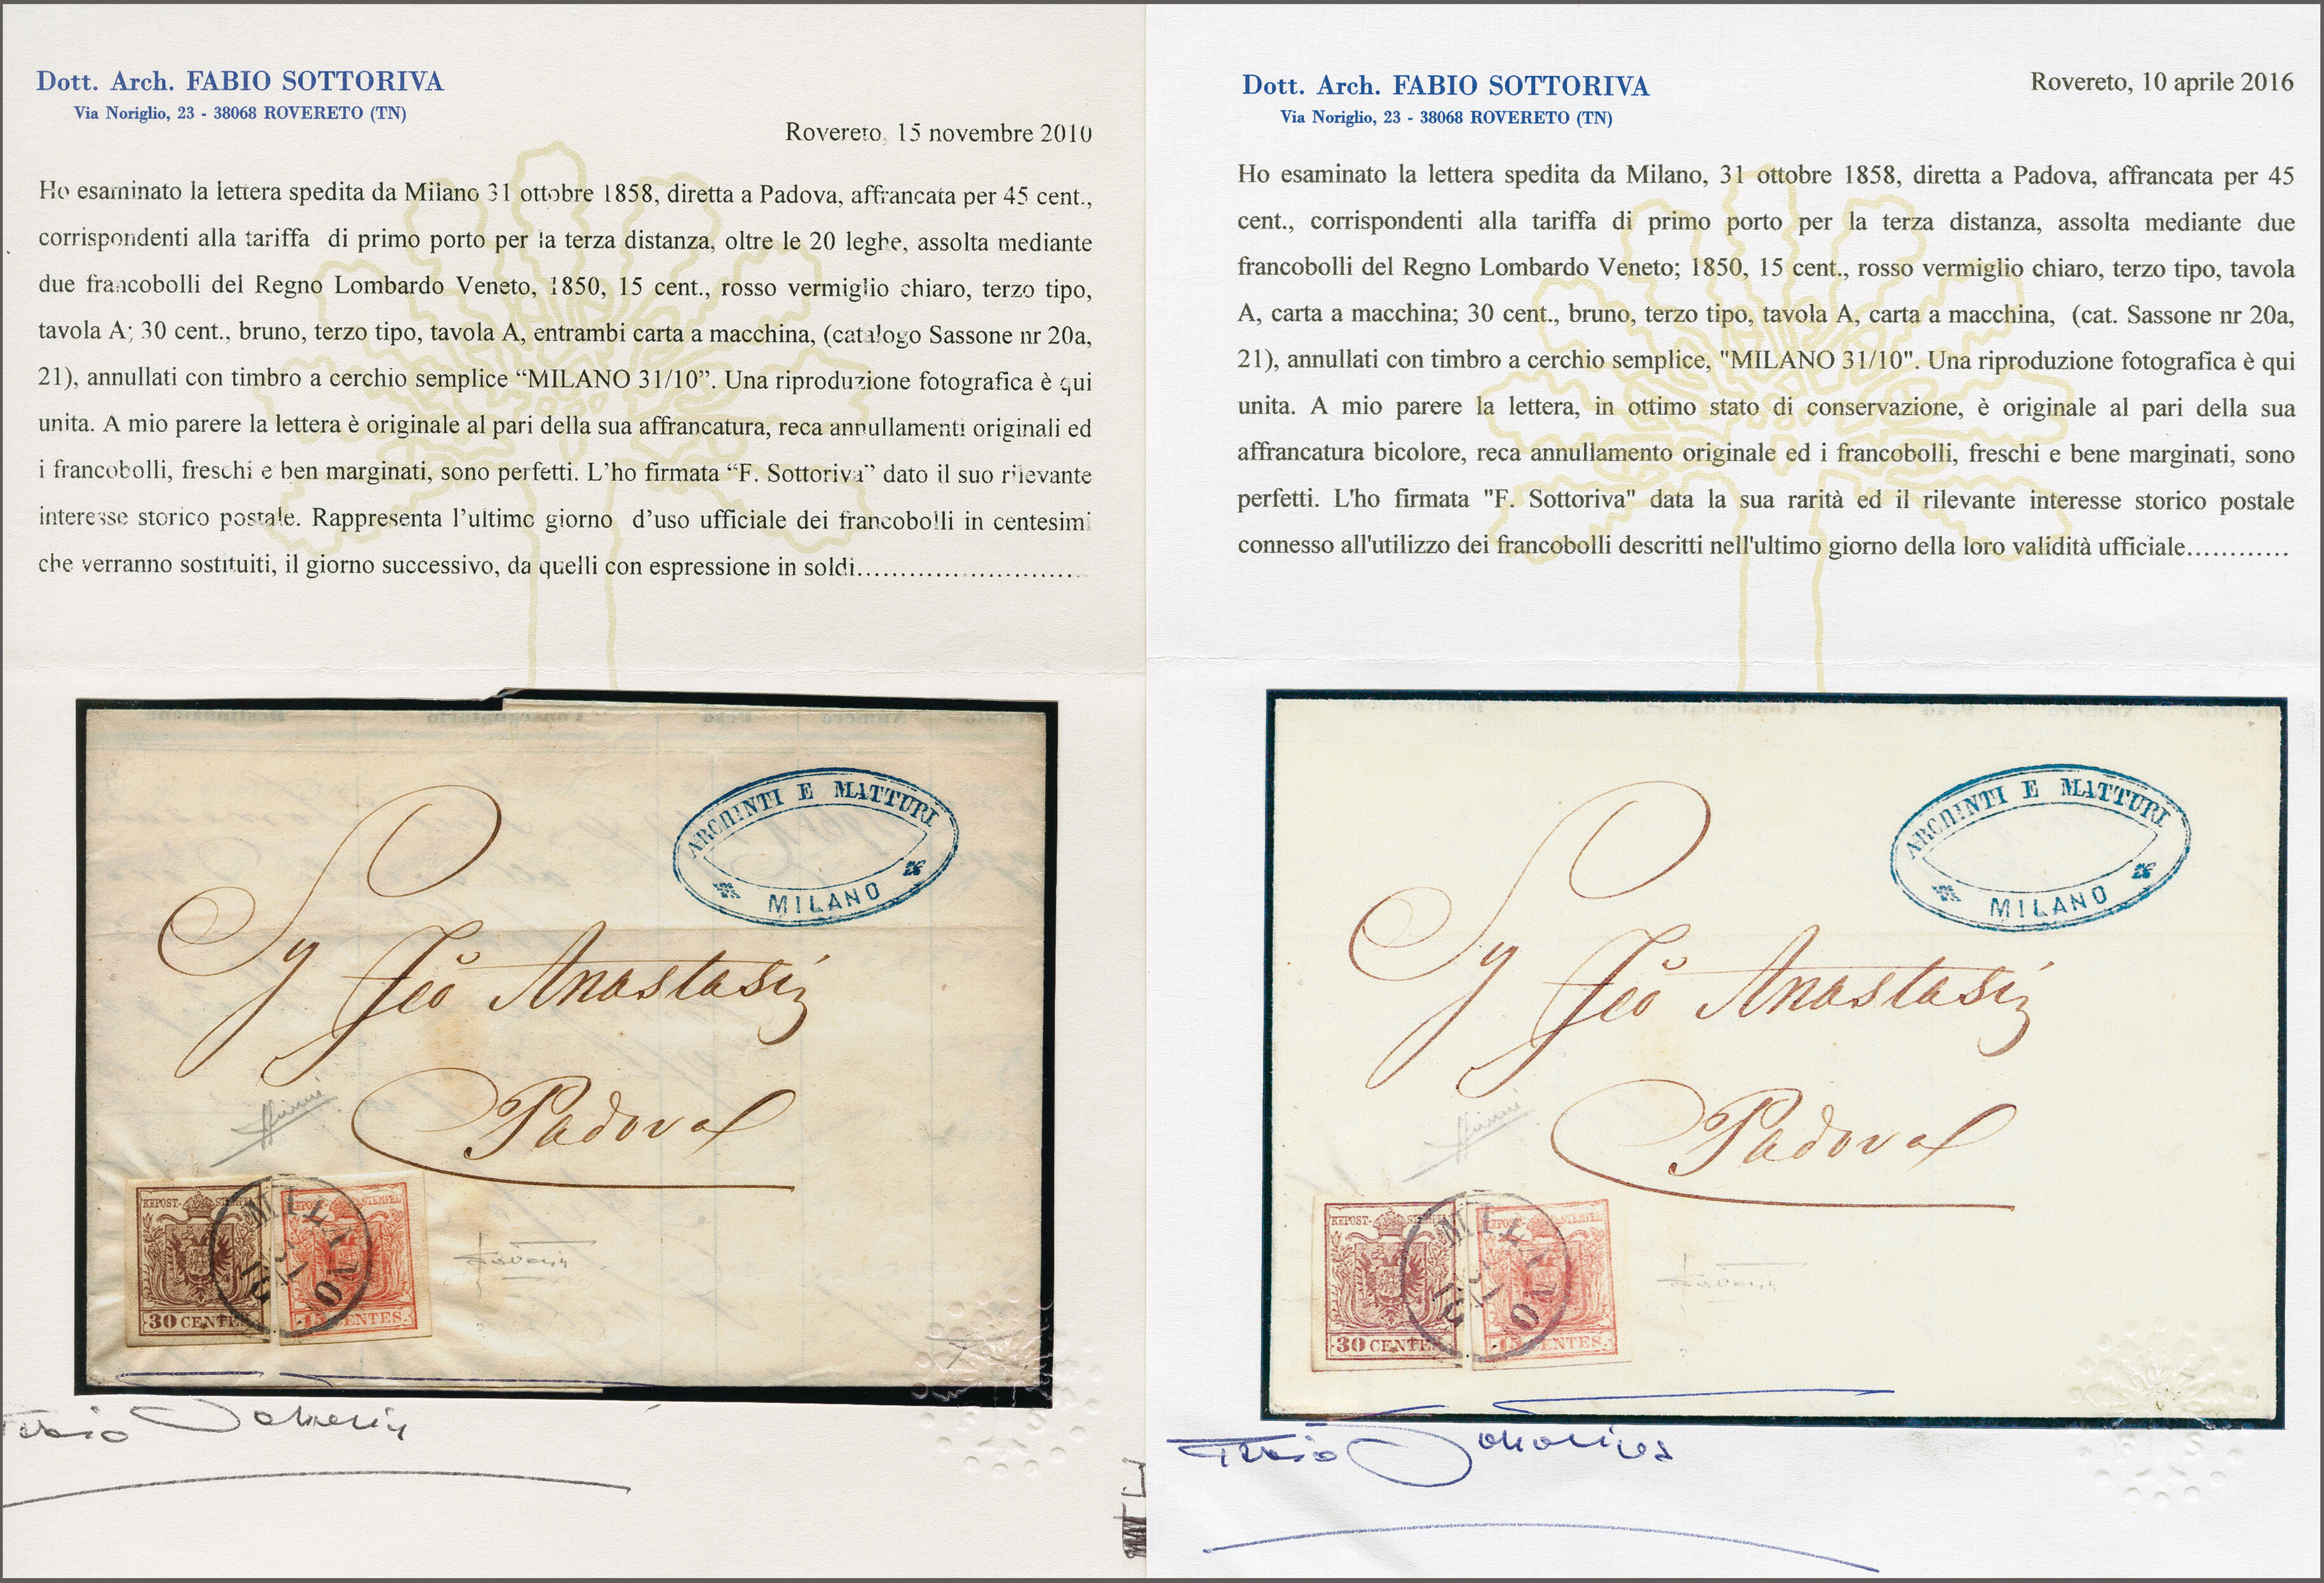 Dott. Arch. FABIO SOTTORIVA
Via Noriglio, 23 - 38068 ROVERETO (TN)
Rovereto, 15 novembre 2010
Ho esaminato la lettera spedita da Milano 31 ottobre 1858, diretta a Padova, affrancata per 45 cent.,
corrispondenti alla tariffa di primo porto per la terza distanza, oltre le 20 leghe, assolta mediante
due francobolli del Regno Lombardo Veneto, 1850, 15 cent., rosso vermiglio chiaro, terzo tipo,
tavola A; 30 cent., bruno, terzo tipo, tavola A, entrambi carta a macchina, (catalogo Sassone nr 20a,
21), annullati con timbro a cerchio semplice “MILANO 31/10”. Una riproduzione fotografica è qui
unita. A mio parere la lettera è originale al pari della sua affrancatura, reca annullamenti originali ed
i francobolli, freschi e ben marginati, sono perfetti. L’ho firmata “F. Sottoriva” dato il suo rilevante
interesse storico postale. Rappresenta l’ultimo giorno d’uso ufficiale dei francobolli in centesimi
che verranno sostituiti, il giorno successivo, da quelli con espressione in soldi..........................
ARCHINTI E MATTURI
MILANO
Anastasi
Padova
KEPOST-STEMPEL
30 CENTES.
STEMPEL
15 CENTES.
MILANO
31
Dott. Arch. FABIO SOTTORIVA
Via Noriglio, 23 - 38068 ROVERETO (TN)
Rovereto, 10 aprile 2016
Ho esaminato la lettera spedita da Milano, 31 ottobre 1858, diretta a Padova, affrancata per 45
cent., corrispondenti alla tariffa di primo porto per la terza distanza, assolta mediante due
francobolli del Regno Lombardo Veneto; 1850, 15 cent., rosso vermiglio chiaro, terzo tipo, tavola
A, carta a macchina; 30 cent., bruno, terzo tipo, tavola A, carta a macchina, (cat. Sassone nr 20a,
21), annullati con timbro a cerchio semplice, "MILANO 31/10". Una riproduzione fotografica è qui
unita. A mio parere la lettera, in ottimo stato di conservazione, è originale al pari della sua
affrancatura bicolore, reca annullamento originale ed i francobolli, freschi e bene marginati, sono
perfetti. L'ho firmata "F. Sottoriva" data la sua rarità ed il rilevante interesse storico postale
connesso all'utilizzo dei francobolli descritti nell'ultimo giorno della loro validità ufficiale............
ARCHINTI E MATTURI
MILANO
Anastasi
Padova
KEPOST-STEMPEL
30 CENTES.
STEMPEL
15 CENTES.
MILANO
31